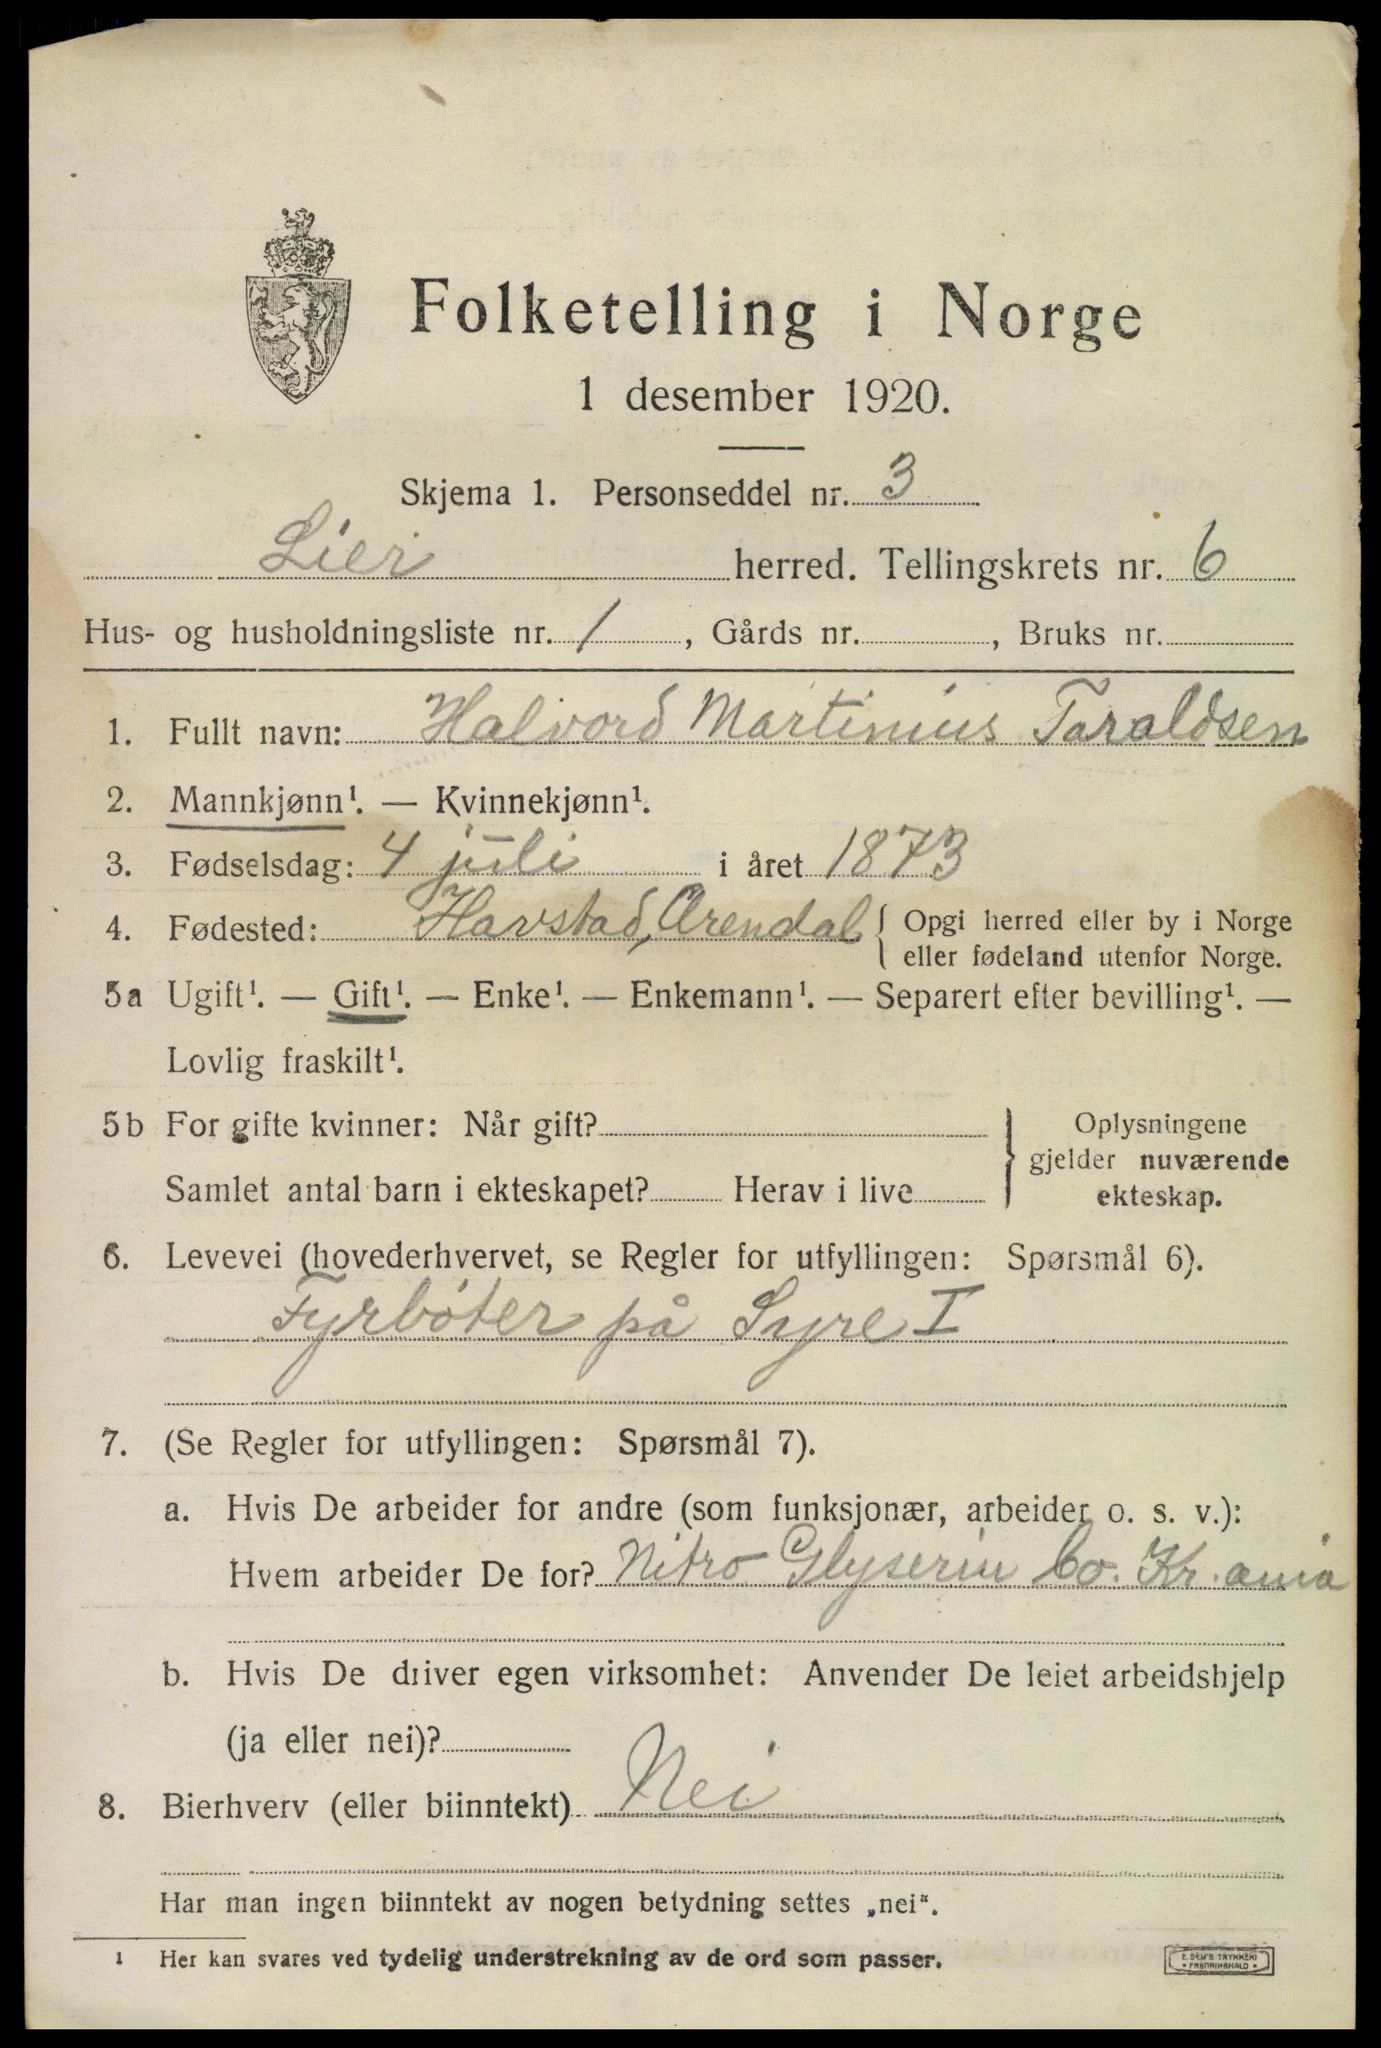 Folketelling i Norge
1 desember 1920.
Skjema 1. Personseddel nr. 3
Lier herred. Tellingskrets nr. 6
Hus- og husholdningsliste nr. 1, Gårds nr. , Bruks nr.
1. Fullt navn: Halvord Martinius Taraldsen
2. Mannkjønn¹. — Kvinnekjønn¹.
3. Fødselsdag: 4 juli i året 1873
4. Fødested: Havstad, Arendal { Opgi herred eller by i Norge
eller fødeland utenfor Norge.
5a Ugift¹. — Gift¹. — Enke¹. — Enkemann¹. — Separert efter bevilling¹. —
Lovlig fraskilt¹.
5b For gifte kvinner: Når gift?
Samlet antal barn i ekteskapet? Herav i live
} Oplysningene
gjelder nuværende
ekteskap.
6. Levevei (hovederhvervet, se Regler for utfyllingen: Spørsmål 6).
Fyrbøter på Syre I
7. (Se Regler for utfyllingen: Spørsmål 7).
a. Hvis De arbeider for andre (som funksjonær, arbeider o. s. v.):
Hvem arbeider De for? Nitro Glyserin Co. Kr.ania
b. Hvis De driver egen virksomhet: Anvender De leiet arbeidshjelp
(ja eller nei)?
8. Bierhverv (eller biinntekt) Nei
Har man ingen biinntekt av nogen betydning settes „nei".
¹ Her kan svares ved tydelig understrekning av de ord som passer.
E. SEM'S TRYKKERI
• FREDRIKSHALD •